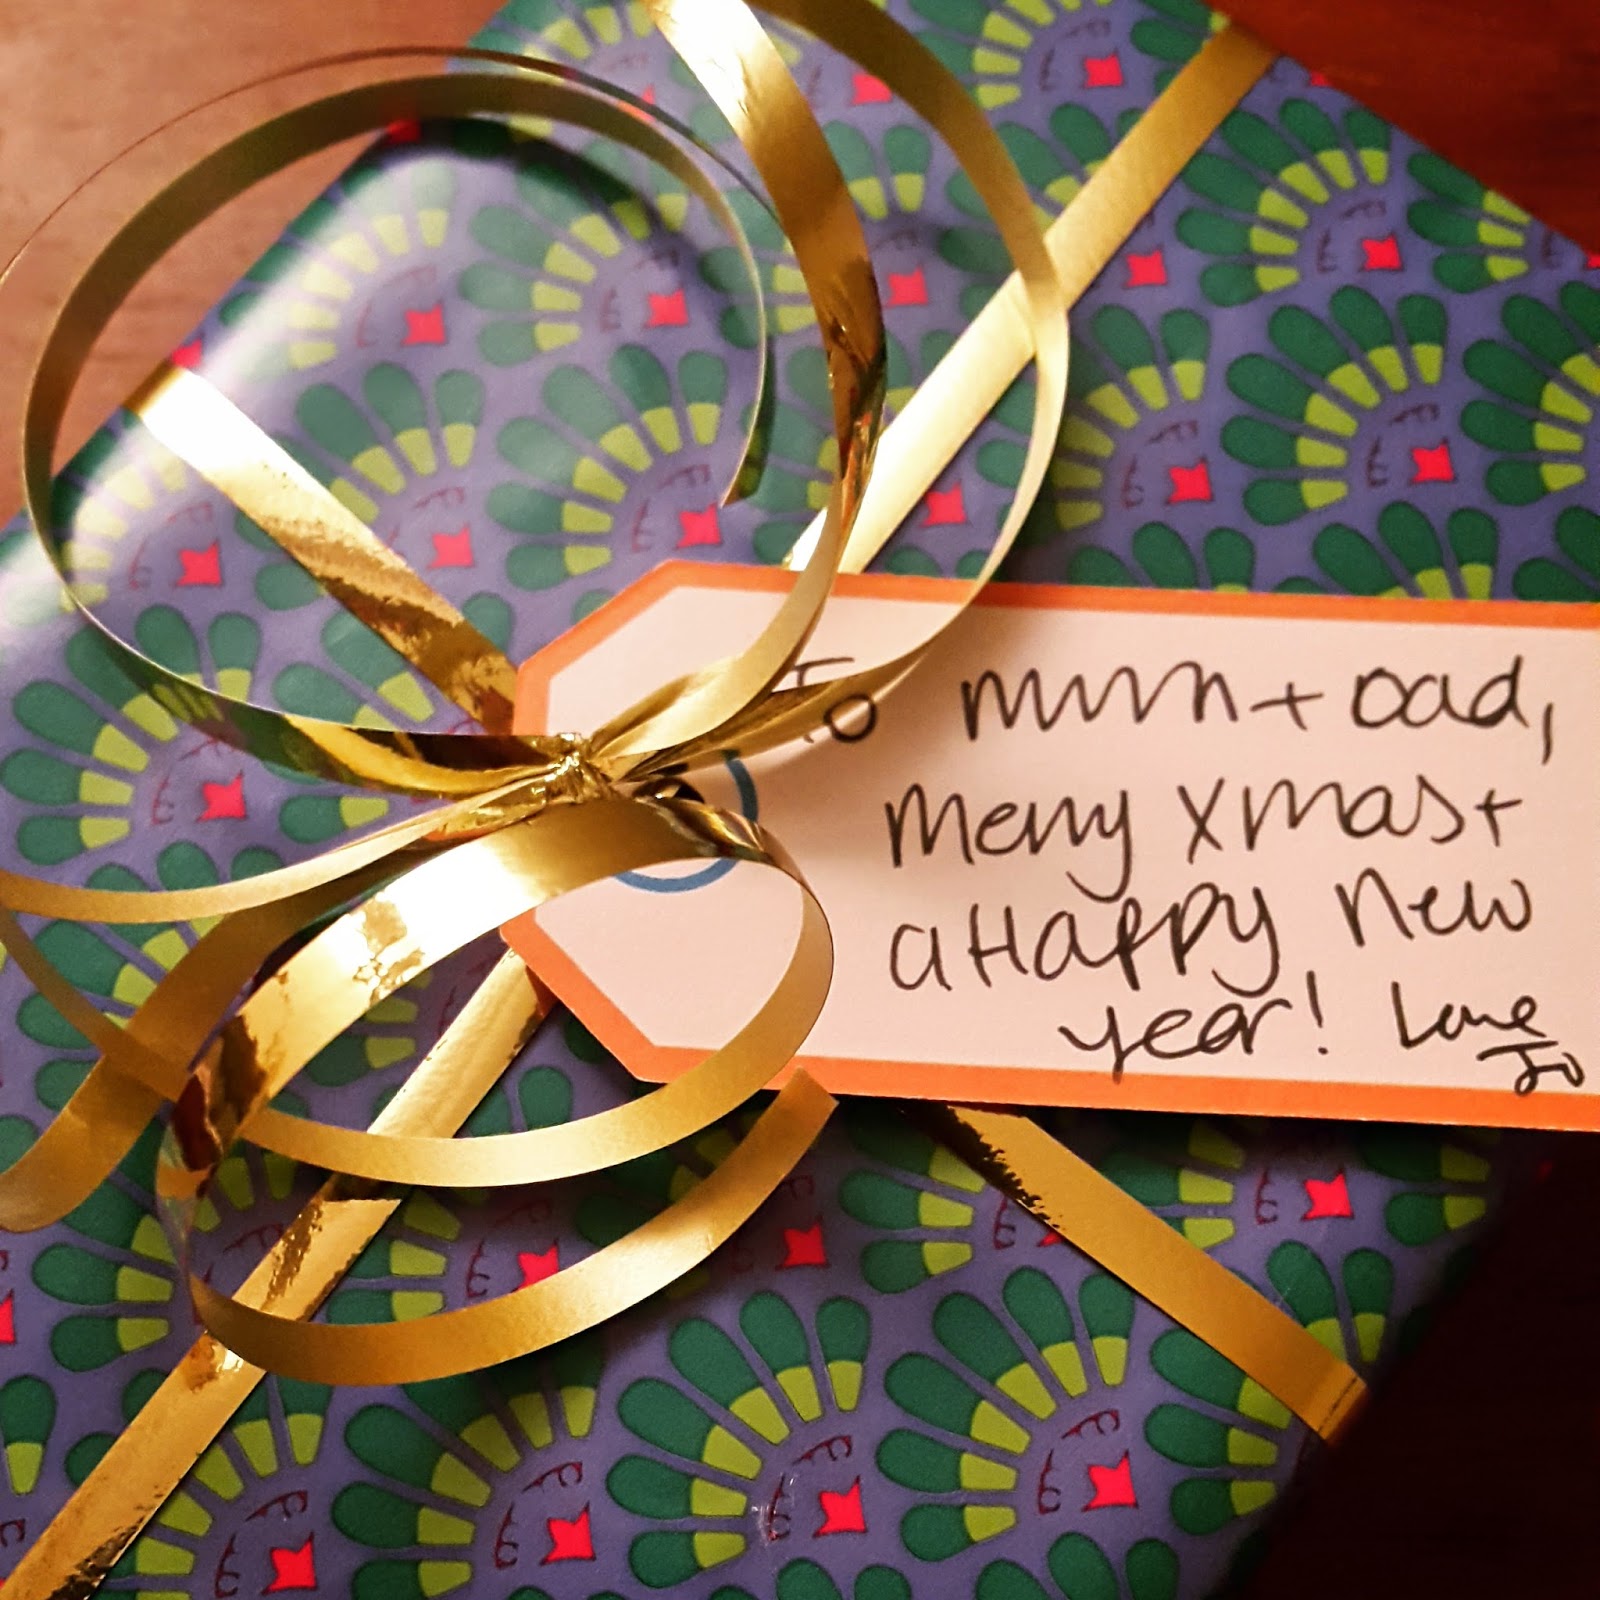 To mum + Dad,
Merry Xmas +
a Happy New
year! Love
Jo